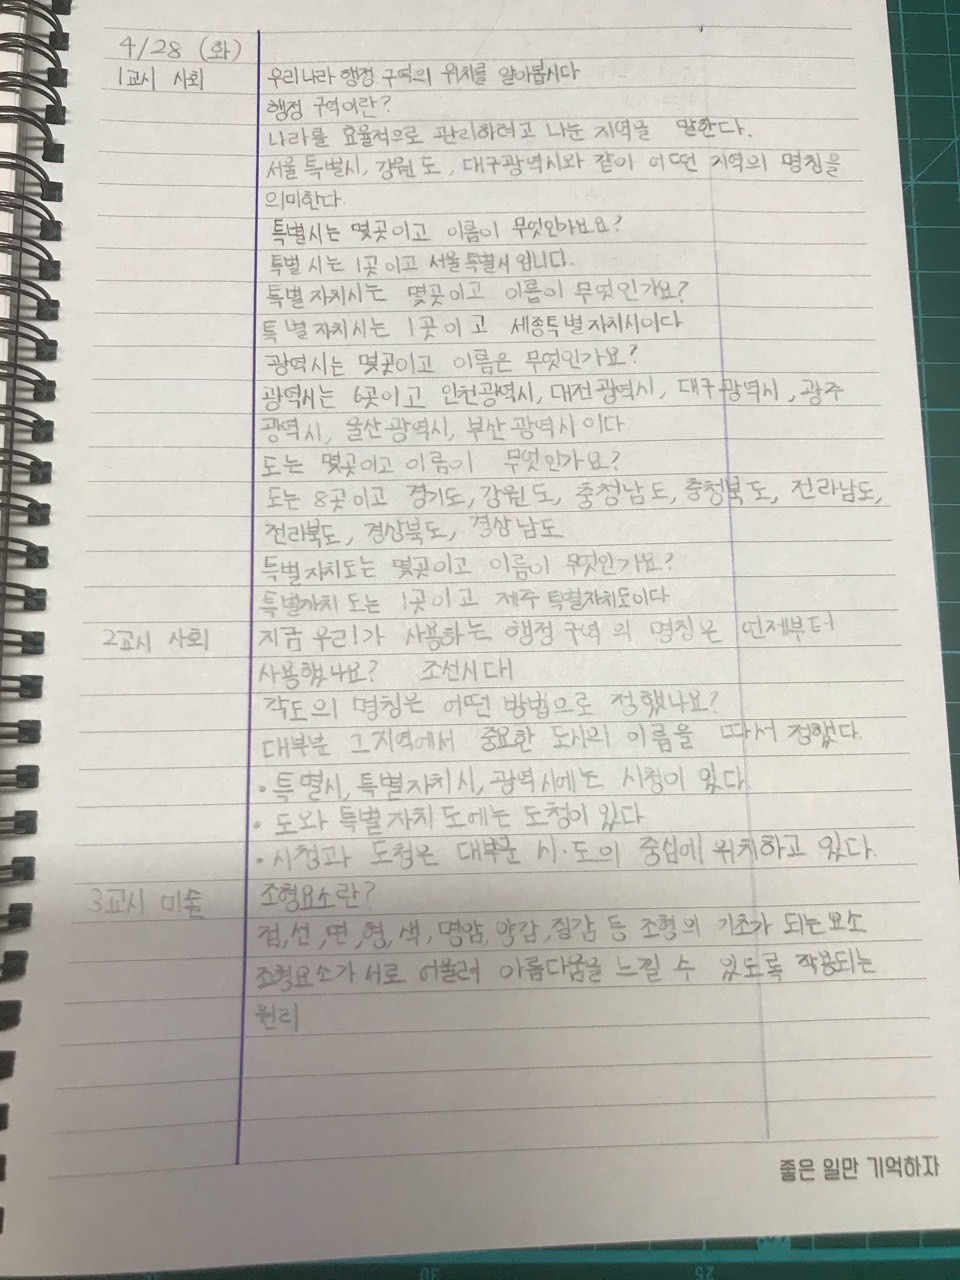 4/28 (화)
1교시 사회 우리나라 행정 구역의 위치를 알아봅시다
행정 구역이란?
나라를 요율적으로 관리하려고 나눈 지역을 말한다.
서울 특별시, 강원도, 대구광역시와 같이 어떤 지역의 명칭을
의미한다.
특별시는 몇곳이고 이름이 무엇인가요?
특별시는 1곳이고 서울특별시 입니다.
특별자치시는 몇곳이고 이름이 무엇인가요?
특별자치시는 1곳이고 세종특별자치시이다
광역시는 몇곳이고 이름은 무엇인가요?
광역시는 6곳이고 인천광역시, 대전광역시, 대구광역시, 광주
광역시, 울산광역시, 부산광역시이다
도는 몇곳이고 이름이 무엇인가요?
도는 8곳이고 경기도, 강원도, 충청남도, 충청북도, 전라남도,
전라북도, 경상북도, 경상남도
특별자치도는 몇곳이고 이름이 무엇인가요?
특별자치도는 1곳이고 제주 특별자치도이다
2교시 사회 지금 우리가 사용하는 행정구역의 명칭은 언제부터
사용했나요? 조선시대
각도의 명칭은 어떤 방법으로 정했나요?
대부분 그지역에서 중요한 도시의 이름을 따서 정했다.
• 특별시, 특별자치시, 광역시에는 시청이 있다.
• 도와 특별자치도에는 도청이 있다
• 시청과 도청은 대부분 시·도의 중심에 위치하고 있다.
3교시 미술 조형요소란?
점, 선, 면, 형, 색, 명암, 양감, 질감 등 조형의 기초가 되는 요소
조형요소가 서로 어울려 아름다움을 느낄 수 있도록 작용되는
원리
좋은 일만 기억하자
30
25